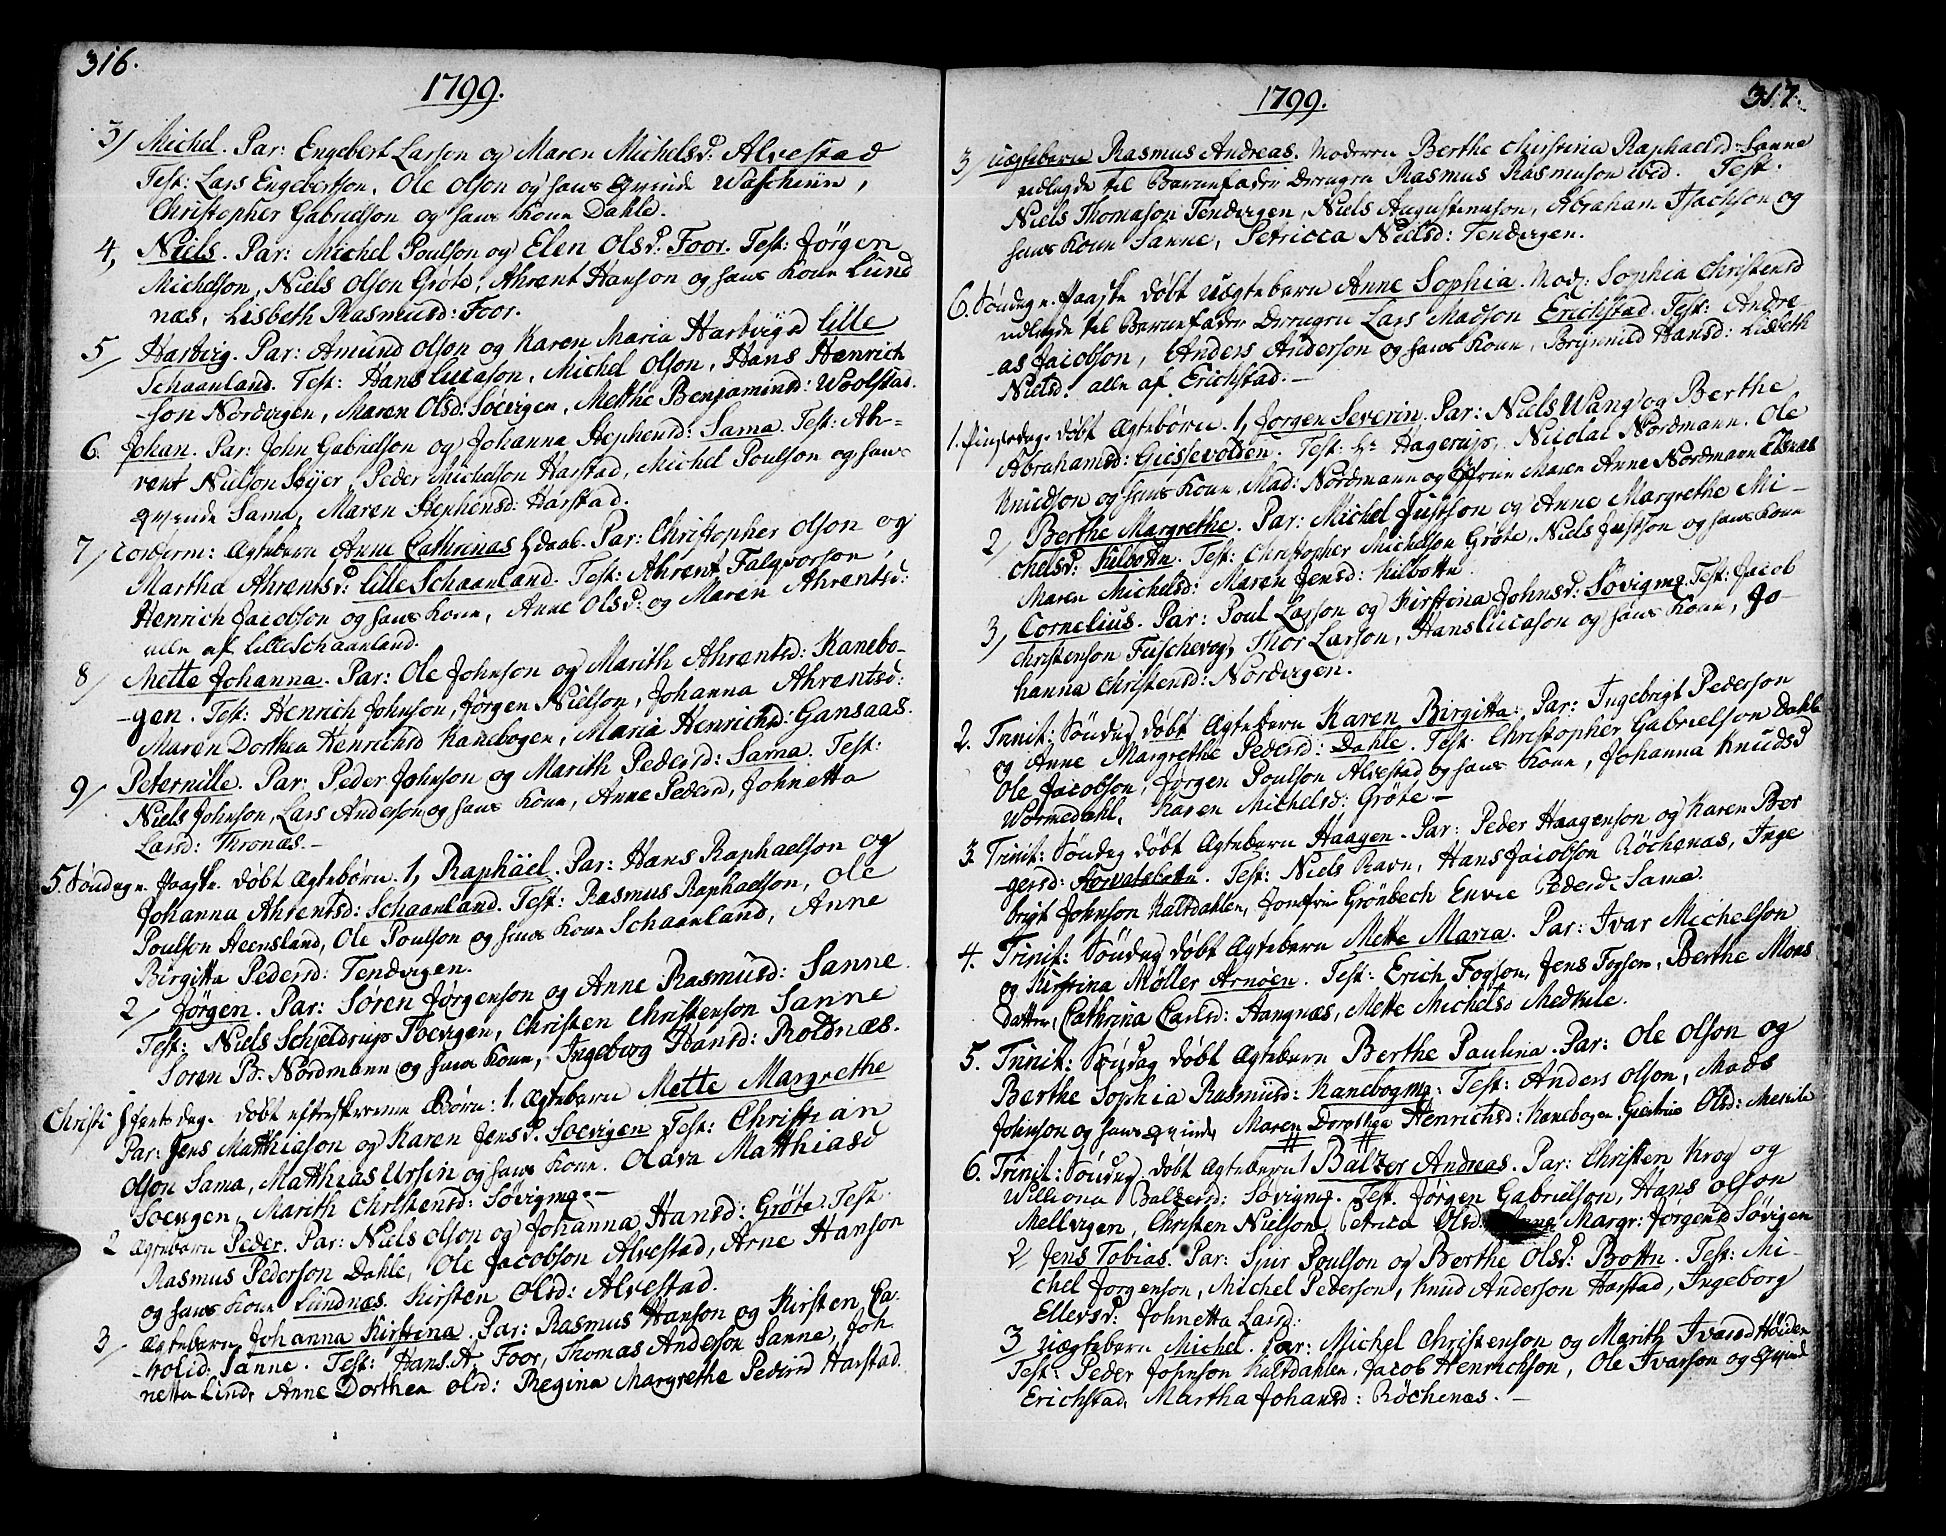 316.
1799.
3/ Michel. Par: Engebert Larson og Maren Michelsd: Alvestad
Test: Lars Engebertson, Ole Olson og hans Qvinde
Christopher Gabrielson og hans Kone Dahle.
4, Niels. Par: Michel Poulson og Elen Olsd. Foor. Test: Jörgen
Michelson, Niels Olson Gröte, Ahrent Hanson og hans Kone Lund
næs, Lisbeth Rasmusd: Foor.
5/ Hartvig. Par: Amund Olson og Karen Maria Hartvigsd lille
Schaanland. Test: Hans Lucason, Michel Olson, Hans Henrich
-son Nordvigen, Maren Olsd: Soevigen, Mette Benjamind: Woolstad.
6. Johan. Par: John Gabrielson og Johanna Stephensd: Sama. Test: Ah-
rent Nielson Seyer, Peder Michelson Harstad, Michel Poulson og hans
Qvinde Sama, Maren Stephensd: Harstad.
7/ Confirm: Ægtebarn Anne Cathrinas hdaab. Par: Christopher Olson og
Martha Ahrentsd: Lille Schaanland. Test: Ahrent Falqvorson,
Henrich Jacobson og hans Kone, Anne Olsd: og Maren Ahrentsd:
alle af Lille Schaanland.
8/ Mette Johanna. Par: Ole Johnson og Marith Ahrentsd: Kanebo-
-gen. Test: Henrich Johnson, Jörgen Nielson, Johanna Ahrentsd:
Maren Dorthea Henrichsd Kanebogen, Maria Henrichsd: Gansaas.
9/ Peternille. Par: Peder Johnson og Marith Pedersd: Sama. Test:
Niels Johnson, Lars Anderson og hans Kone, Anne Pedersd, Johnetta
Larsd: Thronæs.-
5. Söndag e. Paaske. döbt Ægtebörn. 1, Raphäel. Par: Hans Raphaelson og
Johanna Ahrentsd: Schaanland. Test: Rasmus Raphaelson, Ole
Poulson Heensland, Ole Poulson og hans Kone Schaanland, Anne
Birgitta Pedersd: Tendvigen.
2/ Jörgen. Par: Sören Jörgenson og Anne Rasmusd: Sanne.
Test: Niels Schjeldrup Soevigen, Christen Christenson Sanne
Soren B. Nordmann og hans Kone, Ingeborg Hansd: Roldnæs.
Christi Hfartsdag. döbt efterskrevne Börn: 1. Ægtebarn Mette Margrethe
Par: Jens Matthiason og Karen Jensd. Soevigen Test: Christian
Olson Sama, Matthias Ursin og hans Kone. Olava Matthiasd
Soevigen, Marith Christensd: Sövigen.-
2 Ægtebarn Peder. Par: Niels Olson og Johanna Hansd: Gröte. Test.
Rasmus Pederson Dahle, Ole Jacobson Alvestad, Arne Hanson
og hans Kone Lundnæs. Kirsten Olsd: Alvestad.
3/ Ægtebarn Johanna Kirstina. Par: Rasmus Hanson og Kirsten Ca-
-rolid: Sanne. Test: Hans A. Foor, Thomas Anderson Sanne, Joh
netta Lind, Anne Dorthea Olsd: Regina Margrethe Pedersd Harstad.
317.
1799.
3/ uægtebarn Rasmus Andreas. Moderen Berthe Christina Raphaelsd: Sanne
udlagde til Barnefader Drengen Rasmus Rasmuson ibid. Test:
Niels Thomason Tendvigen, Niels Augustinuson, Abraham Isachson og
hans Kone Sanne, Petricca Nielsd: Tendvigen.
6. Söndag e. Paaske döbt uægtebarn Anne Sophia. Mod: Sophia Christensd
udlagde til Barnefader Drengen Lars Madson Erichstad. Test: Andre-
-as Jacobson, Anders Anderson og hans Kone, Brynnild Hansd: Lisbeth
Nielsd: alle af Erichstad.-
1. Pingsedag. döbt Ægtebörn. 1, Jorgen Severin. Par: Niels Wang og Berthe
Abrahamsd: Giessevolden. Test: Hr Hagerup, Nicolai Nordmann. Ole
Knudson og hans Kone, Mad: Nordmann og Jfrue Maren Anne Nordmann Ebnæs
2/ Berthe Margrethe. Par: Michel Justson og Anne Margrethe Mi-
chelsd: Kilbottn. Test: Christopher Michelson Gröte, Niels Justson og hans Kone
Maren Michelsd: Maren Jensd: Kilbottn
3/ Cornelius. Par: Poul Larson og Kirstina Johnsd: Sövigen. Test: Jacob
Christenson Fuschevog, Thor Larson, Hans Lucason og hans Kone, Jo-
hanna Christensd: Nordvigen.
2. Trinit: Söndag döbt Ægtebarn Karen Birgitta. Par: Ingebrigt Pederson
og Anne Margrethe Pedersd: Dahle. Test: Christopher Gabrielson Dahle
Ole Jacobson, Jörgen Poulson Alvestad og hans Kone, Johanna Knudsd
Wormedahl, Karen Michelsd: Gröte.-
3. Trinit: Söndag döbt Ægtebarn Haagen. Par: Peder Haagenson og Karen Ber
-gersd: Horvatsbottn. Test: Niels Ravn, Hans Jacobson Röchenæs, Inge
brigt Johnson Kaltdahlen, Jomfru Grönbech Envie Pedersd: Sama.
4. Trinit: Söndag döbt Ægtebarn Mette Maria. Par: Ivar Michelson
og Kirstina Møller Arnöen. Test: Erich Fogson, Jens Fogson, Berthe Mons
Datter, Cathrina Carlsd: Hangnæs, Mette Michelsd Medkile.
5. Trinit: Söndag döbt Ægtebarn Berthe Paulina. Par: Ole Olson og
Berthe Sophia Rasmusd: Kanebogen: Test: Anders Olson, Mads
Johnson og hans Qvinde, Maren Dorothea Henrichsd: Kanebogen. Giertrud Olsd: Mercile
6. Trinit: Söndag döbt Ægtebarn 1 Balzer Andreas. Par: Christen Krog og
Williona Balzersd: Sövigen. Test. Jørgen Gabrielson, Hans Olson
Mellvigen, Christen Nielson, Petrica Olsd: Anna Margr: Jorgensd Sövigen
2/ Jens Tobias. Par: Sjur Poulson og Berthe Olsd: Bottn. Test: Mi-
chel Jorgenson, Michel Pederson, Knud Anderson Harstad, Ingeborg
Ellevsd: Johnetta Larsd:
3 uægtebarn Michel. Par: Michel Christenson og Marith Ivarsd Höiden
Test: Peder Johnson Kaltdahlen, Jacob Henrichson, Ole Ivarson og Qvind
Erichstad, Martha Johansd: Röchenæs.-